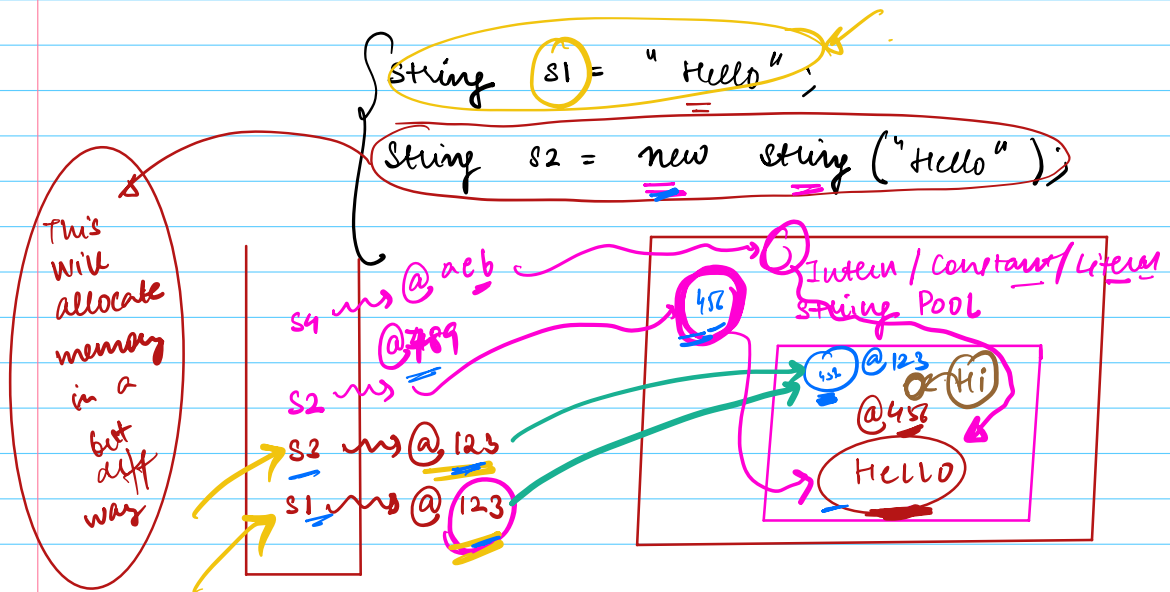 String S1 = "Hello";
String S2 = new String ("Hello");
This
will
allocate
memory
in a
but
diff
way
S4 @aeb
@789
S2
S3 @123
S1 @123
456
Intern / Constant / Literal
String POOL
@123
Hi
@456
HELLO